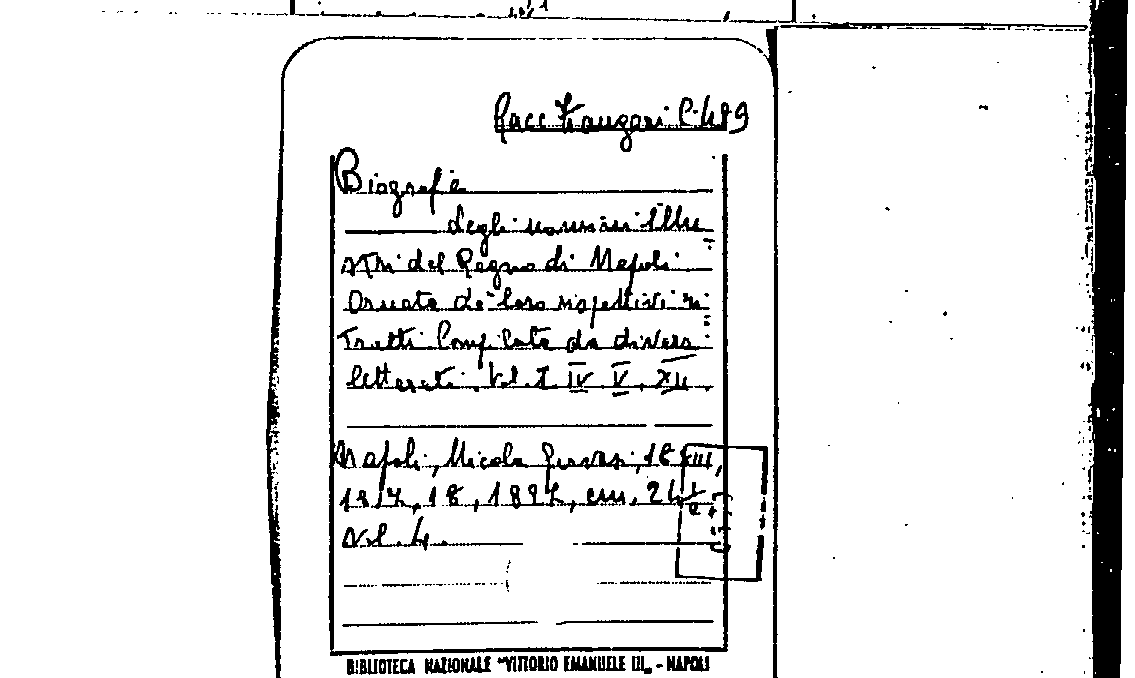 Racc. Zangari C. 489
Biografia
degli uomini illu
stri del Regno di Napoli
Ornata de' loro rispettivi ri
tratti Compilata da diversi
letterati. Vol. I IV V. XII.
Napoli, Nicola Gervasi, 18
18, cm. 24
Vol. 4.
BIBLIOTECA NAZIONALE "VITTORIO EMANUELE III„ - NAPOLI